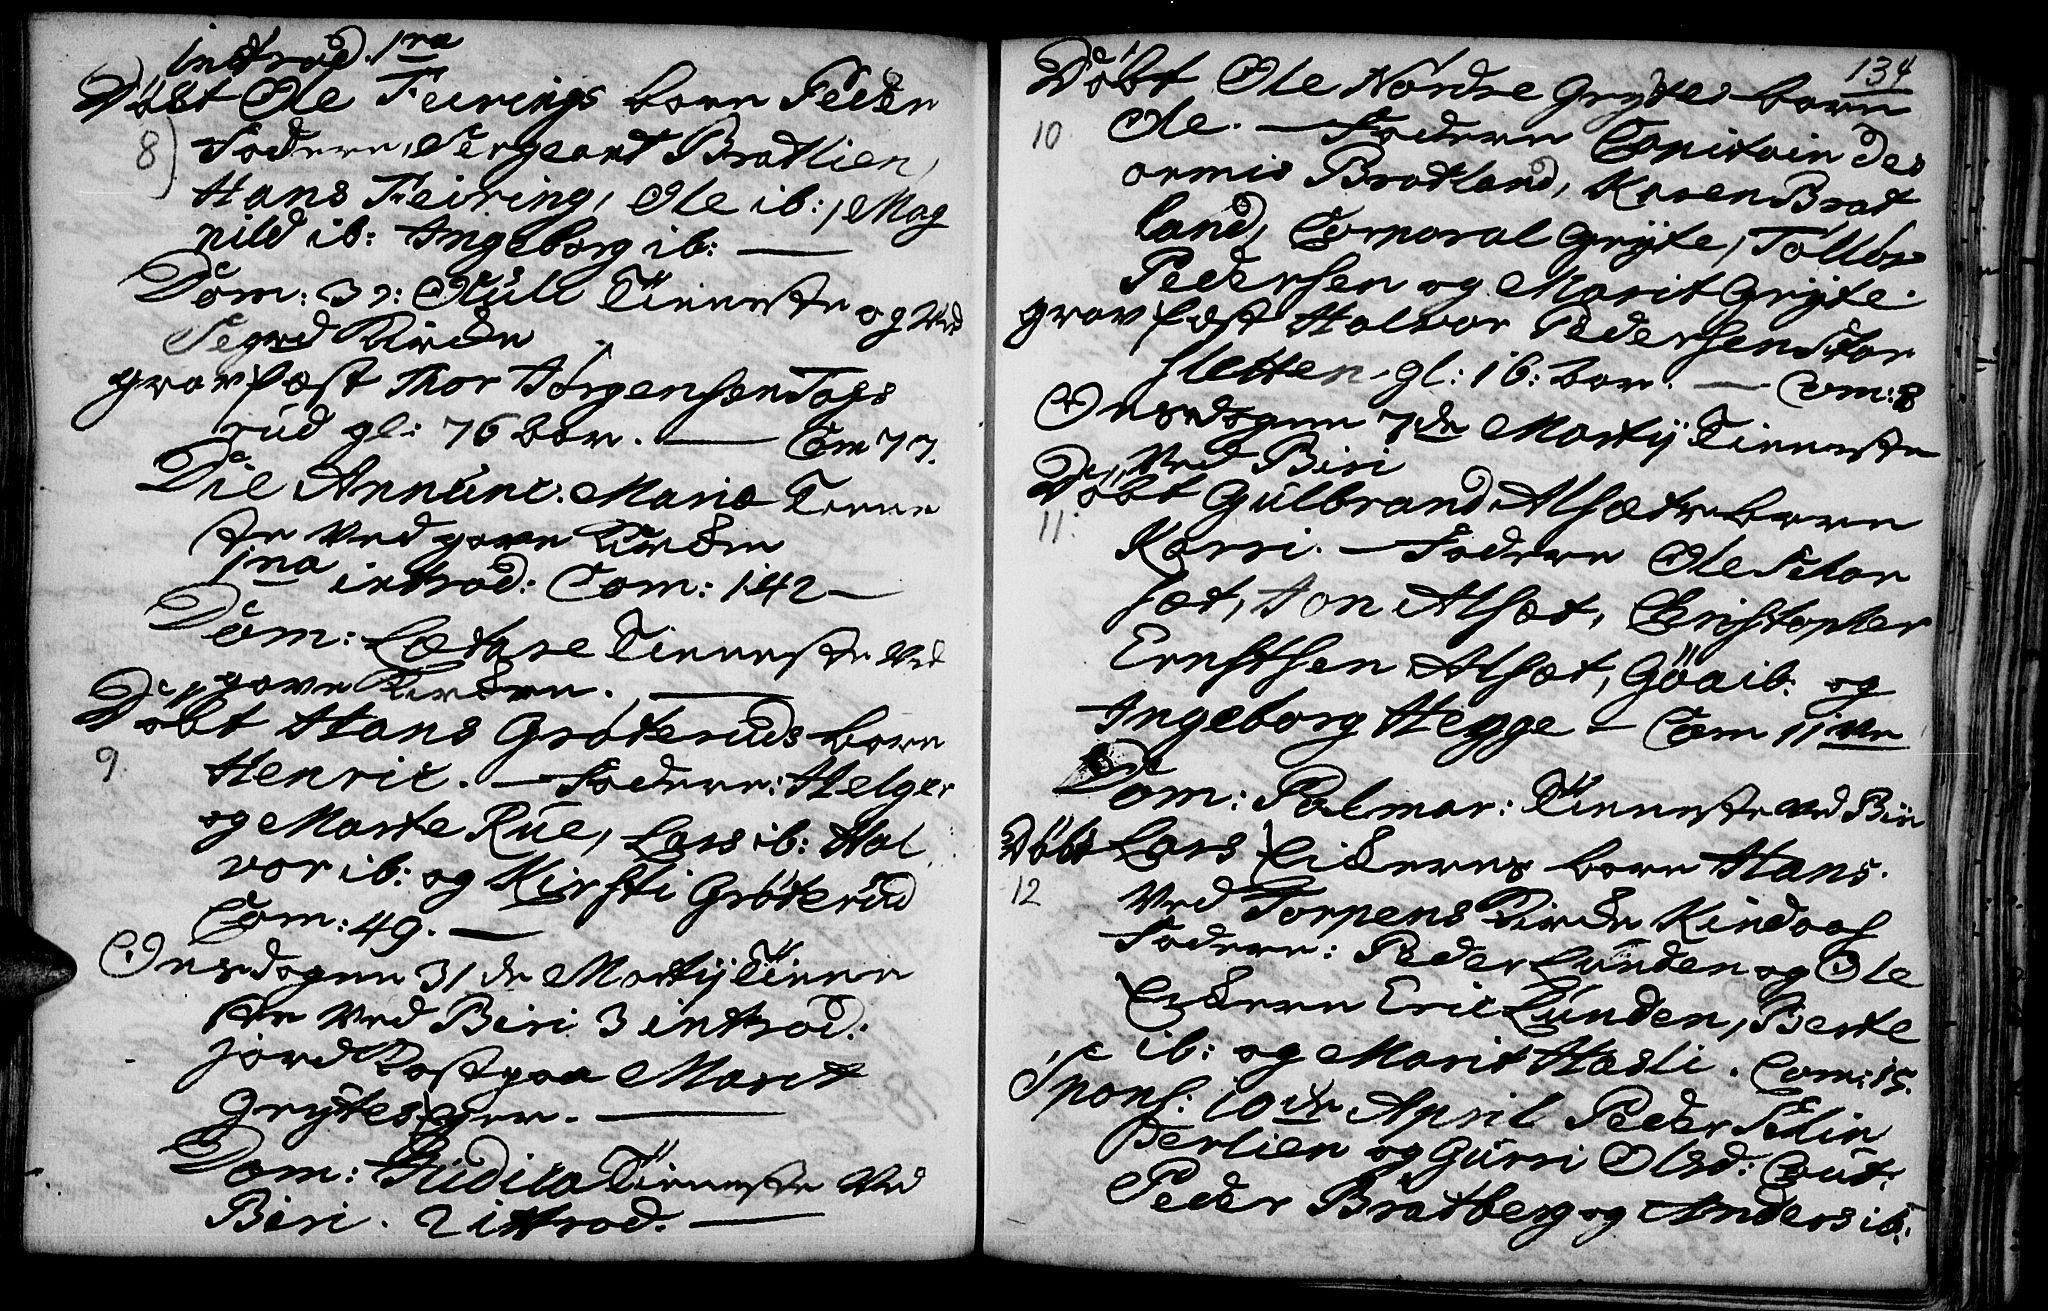 introd. 1na
Döbt Ole Feirings barn Peder
8) Faddere, Sergeant Bratlien,
Hans Feiring, Ole ib:, Mag
nild ib: Ingeborg ib: —
Dom: Oculi Tienneste og ved
Kirche
grav fæst Thor Jørgensen Togs
rud gl: 76 har. — Com 77.
Die Annunc: Mariæ Tienne
ste ved gave Kirchen
1na introd: Com: 142 —
Dom: Lætare Tienneste ved
gave Kirchen. —
Döbt Hans Gröterüds barn
9. Henric. — Faddere: Helger
og Marte Rüe, Lars ib: Hal
vor ib: og Kirsti Gröterüd
Com: 49. —
Onsdagen 31de Martij Tienne
ste ved Biri 3 introd:
jord Kast paa Marit
Gryttes Eyer. —
Dom: Judica Tienneste ved
Biri. 2 introd. —
134
Döbt Ole Nordre Gryttes barn
10 Ole. — Faddere Capitain des
armis Bratland, Karen Brat
land, Corporal Gryte, Tollör
Pedersen og Marit Gryte.
grav fæst Halvor Pedersen Skar
sletten, gl: 16: har. — Com: 8
Onsdagen 7de Martij Tienneste
ved Biri
Döbt Gülbrand Alsæters barn
11. Karri. — Faddere Ole Skar
sæt, Jon Alsæt, Christopher
Ernstsen Alsæt, Göa ib: og
Ingeborg Hegge — Com 11
Dom: Palmar: Tienneste ved Biri
Döbt Lars barn Hans.
12 ved Torpens Kirche Kindaas
Faddere: Peder Lünden og Ole
Eric Lünden, Berte
ib: og Marit Hasli. Com: 15.
Spons: 10de April Peder Skin
berlien og Gürri Olsd: Caut:
Peder Bratberg og Anders ib: